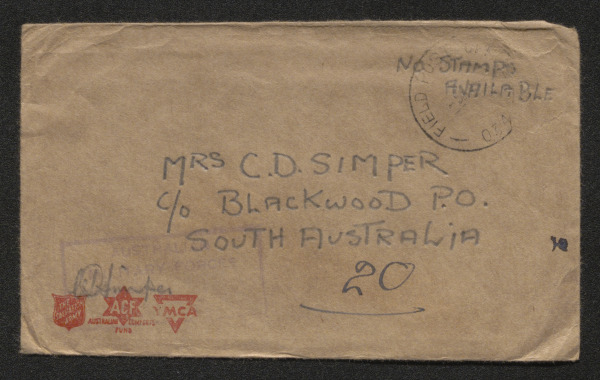 NO STAMPS
AVAILABLE
FIELD
MRS C.D. SIMPER
C/o BLACKWOOD P.O.
SOUTH AUSTRALIA
20
THE
SALVATION
ARMY
ACF
AUSTRALIAN COMFORTS
FUND
YMCA